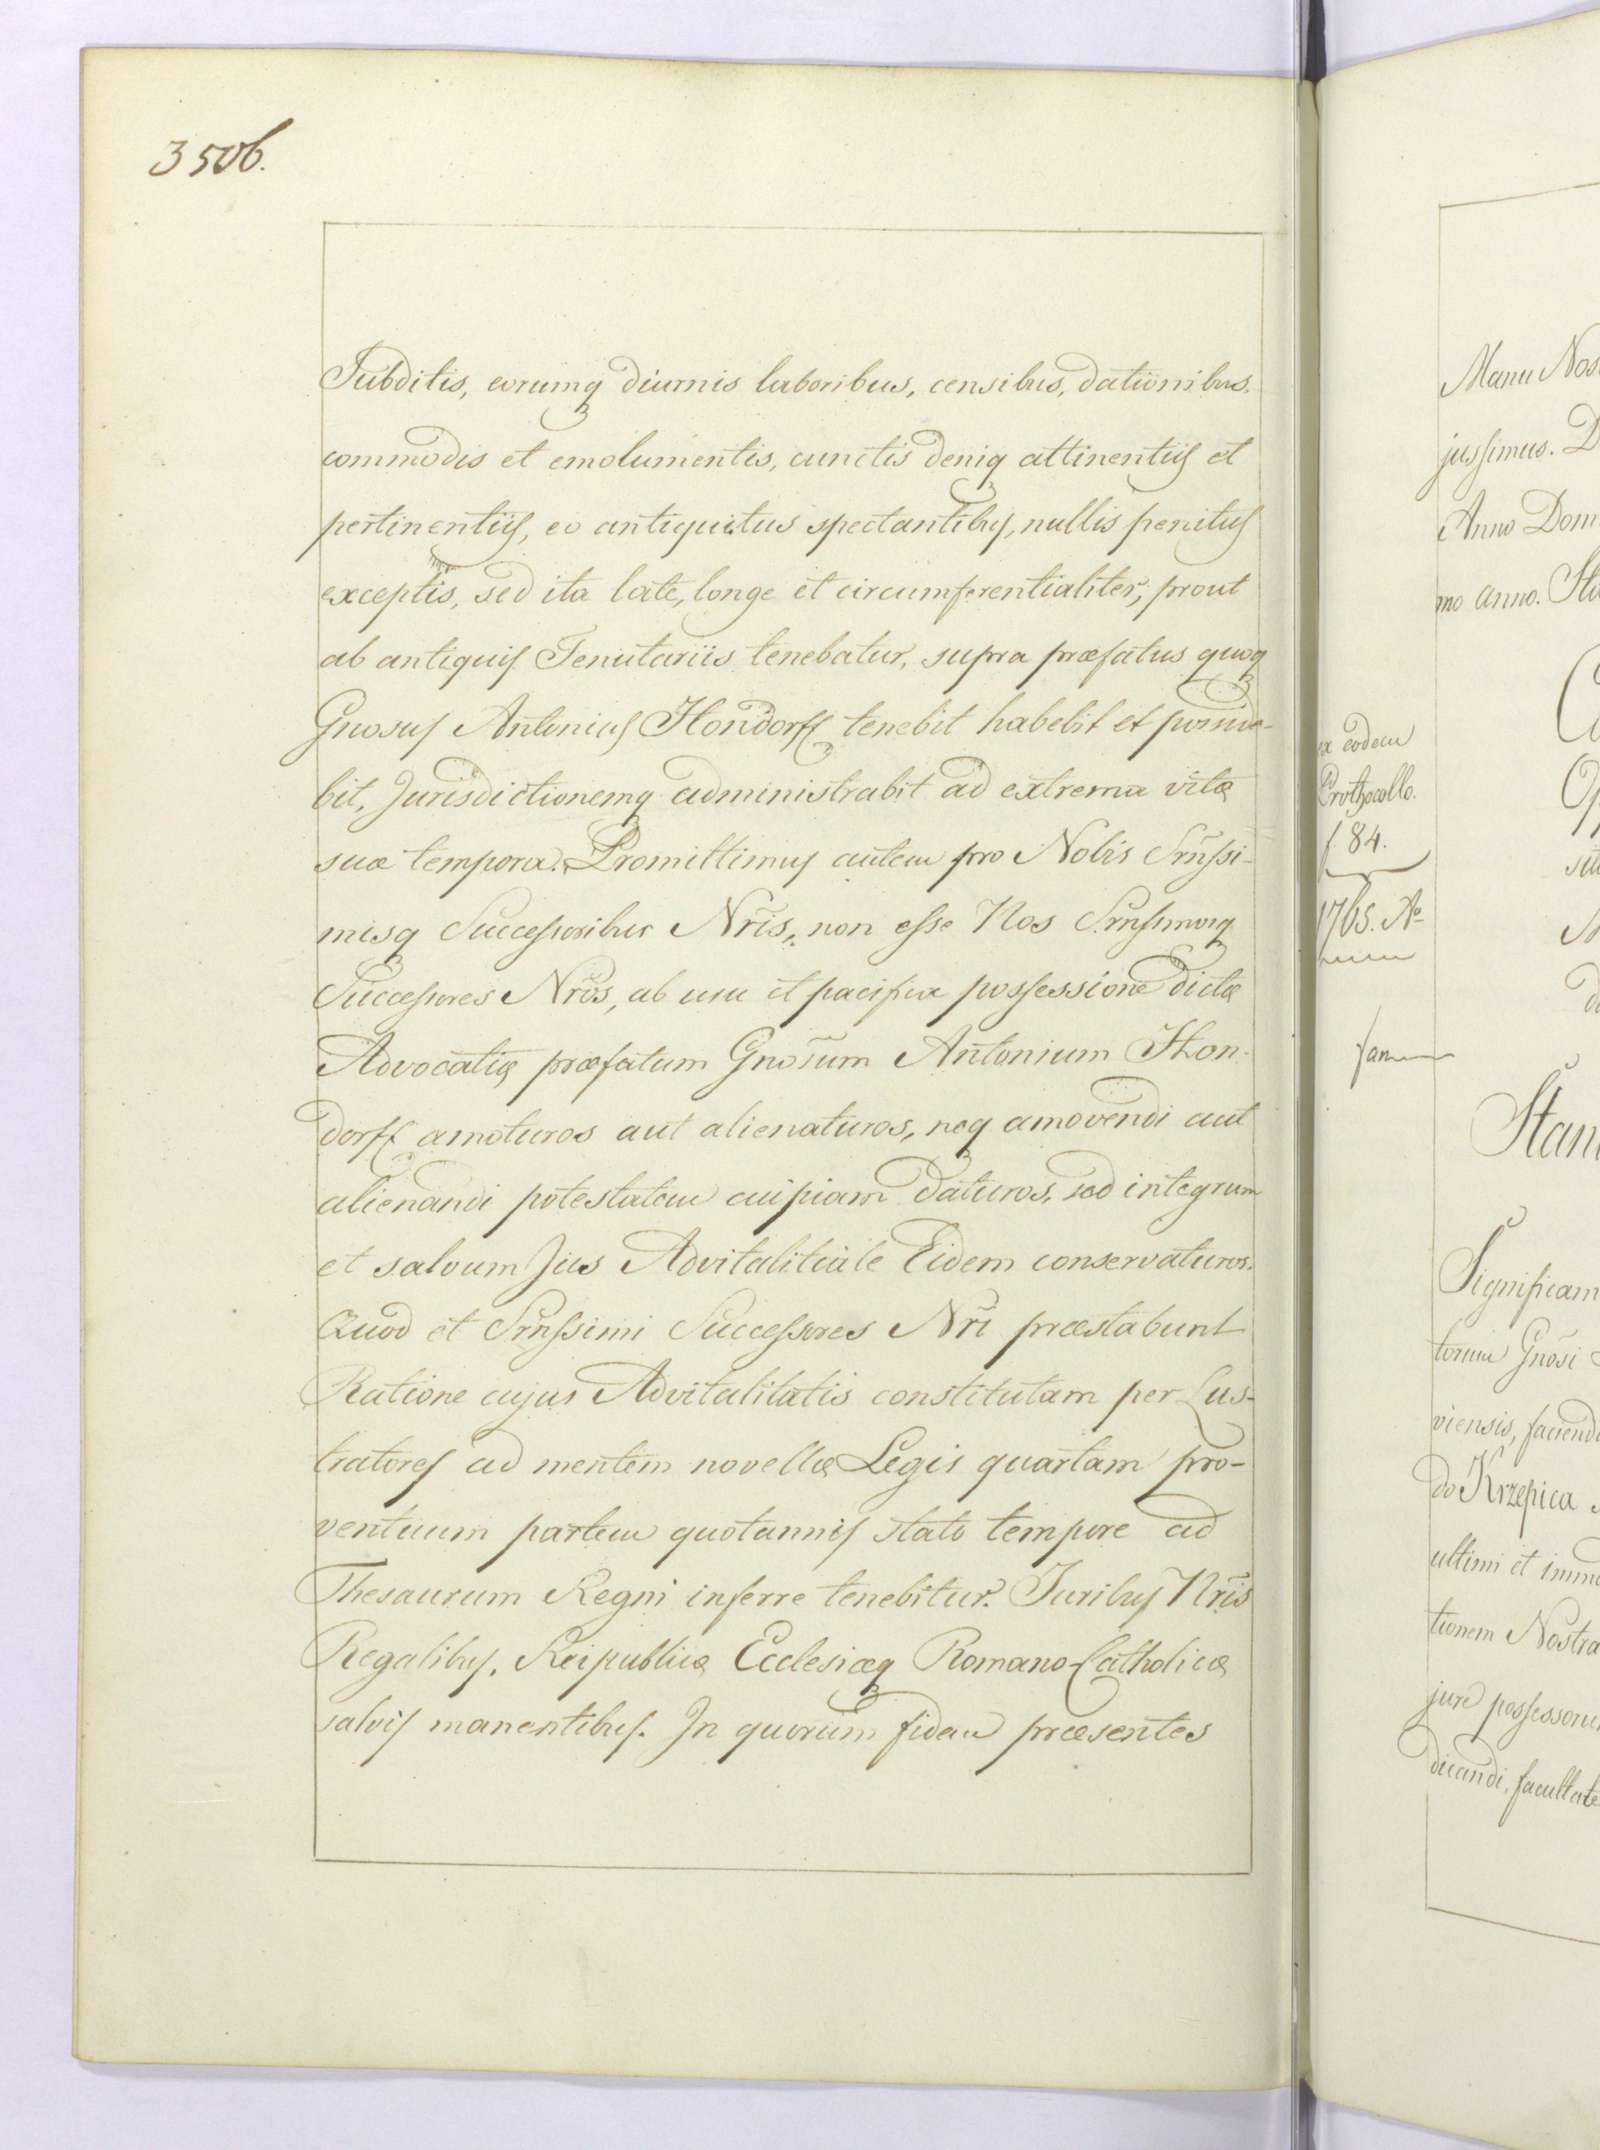 3506.
Subditis, eorumq diurnis laboribus, censibus, dationibus,
commodis et emolumentis, cunctis deniq attinentiis et
pertinentiis, eo antiquitus spectantibus, nullis penitus
exceptis, sed ita late, longe et circumferentialiter, prout
ab antiquis Tenutariis tenebatur, supra præfatus quoq
Gnosus Antonius Hondorff tenebit habebit et posside-
bit, Jurisdictionemq administrabit ad extrema vitæ
suæ tempora. Promittimus autem pro Nobis Srñssi-
misq Successoribus Nr̃is, non esse Nos Srñssimosq
Successores Nr̃os, ab usu et pacifica possessione dictæ
Advocatiæ præfatum Gnosum Antonium Hon-
dorff amoturos aut alienaturos, neq amovendi aut
alienandi potestatem cuipiam daturos, sed integrum
et salvum Jus Advitalitiale Eidem conservaturos.
Quod et Srñssimi Successores Nr̃i præstabunt
Ratione cujus Advitalitatis constitutam per Lus-
tratores ad mentem novellæ Legis quartam pro-
ventuum partem quotannis stato tempore ad
Thesaurum Regni inferre tenebitur. Juribus Nr̃is
Regalibus, Reipublicæ Ecclesiæq Romano-Catholicæ
salvis manentibus. In quorum fidem præsentes
Manu
jussimus.
Anno
mo anno.
ex eodem
Prothocollo.
f. 84.
1765. Ao
Significam
torum Gnõsi
viensis,
do Krzepica
ultimi et
tionem
jure
dicandi,